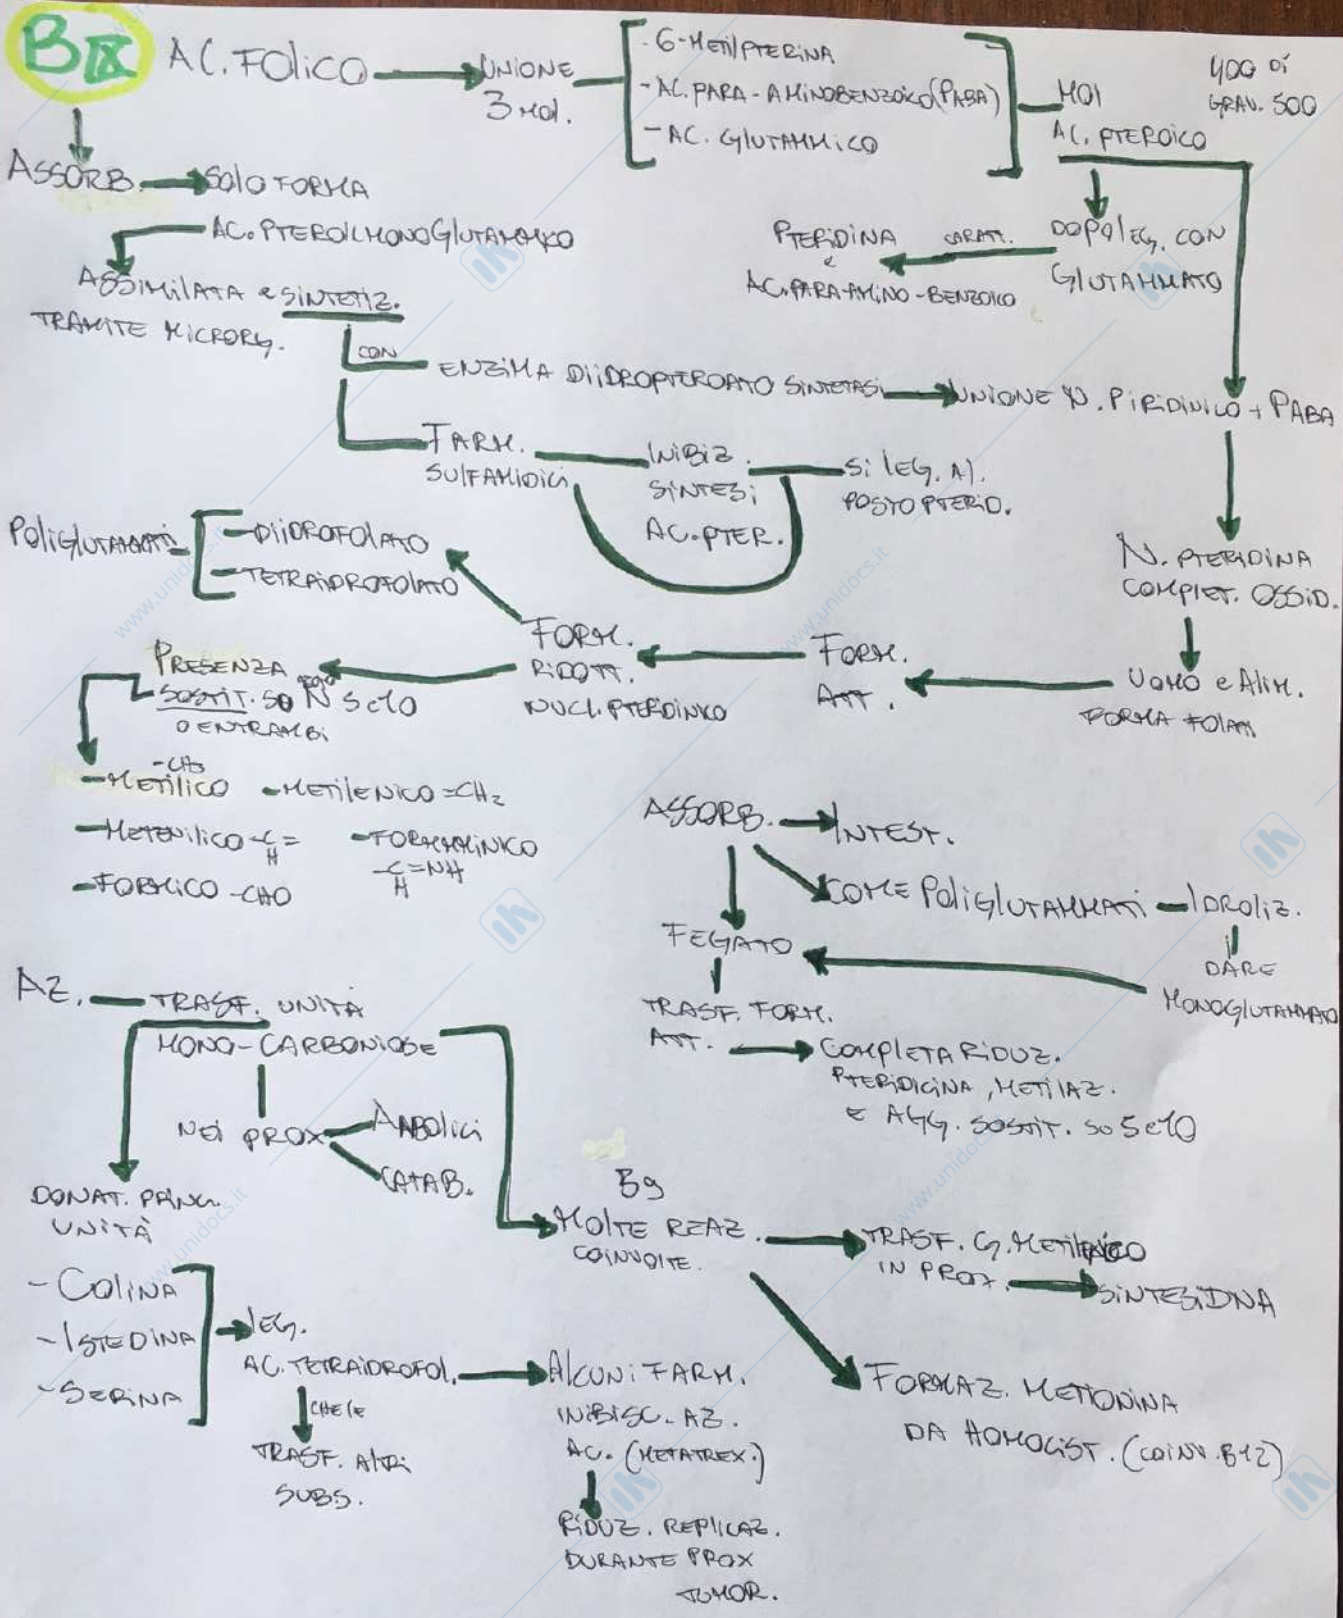 BIX AC. FOLICO
UNIONE
3 MOL.
- 6-METILPTERINA
- AC. PARA-AMINOBENZOICO (PABA)
- AC. GLUTAMMICO
MOL
AC. PTEROICO
400 DI
GRAV. 500
ASSORB. SOLO FORMA
AC. PTEROILMONOGLUTAMMICO
ASSIMILATA e SINTETIZ.
TRAMITE MICRORG.
DOPO LEG. CON
GLUTAMMATO
CARATT.
PTERIDINA
e
AC. PARA-AMINO-BENZOICO
CON
ENZIMA DIIDROPTEROATO SINTETASI
UNIONE N. PIRIDINICO + PABA
FARM.
SULFAMIDICI
INIBIZ.
SINTESI
AC. PTER.
SI LEG. AL
POSTO PTERID.
POLIGLUTAMMATI
- DIIDROFOLATO
- TETRAIDROFOLATO
N. PTERIDINA
COMPLET. OSSID.
UOMO e ALIM.
FORMA FOLATI
FORM.
ATT.
FORM.
RIDOTT.
NUCL. PTERDINICO
PRESENZA
SOSTIT. SU N 5 e 10
O ENTRAMBI
-CH3
- METILICO
- METILENICO =CH2
- METENILICO -C=
H
- FORMIMINICO
-C=NH
H
- FORMICO -CHO
ASSORB. INTEST.
COME POLIGLUTAMMATI - IDROLIZ.
DARE
MONOGLUTAMMATO
FEGATO
TRASF. FORM.
ATT.
COMPLETA RIDUZ.
PTERIDICINA, METILAZ.
E AGG. SOSTIT. SU 5 e 10
AZ. - TRASF. UNITÀ
MONO-CARBONIOSE
NEI PROX
ANABOLICI
CATAB.
DONAT. PRINC.
UNITÀ
- COLINA
- ISTEDINA
- SERINA
LEG.
AC. TETRAIDROFOL.
CHE LE
TRASF. ALTRI
SUBS.
ALCUNI FARM.
INIBISC. AZ.
AC. (METATREX.)
RIDUZ. REPLICAZ.
DURANTE PROX
TUMOR.
B9
MOLTE REAZ.
COINVOLTE.
TRASF. G. METILENICO
IN PROX.
SINTESI DNA
FORMAZ. METIONINA
DA HOMOCIST. (COINV. B12)
www.unidocs.it
www.unidocs.it
www.unidocs.it
www.unidocs.it